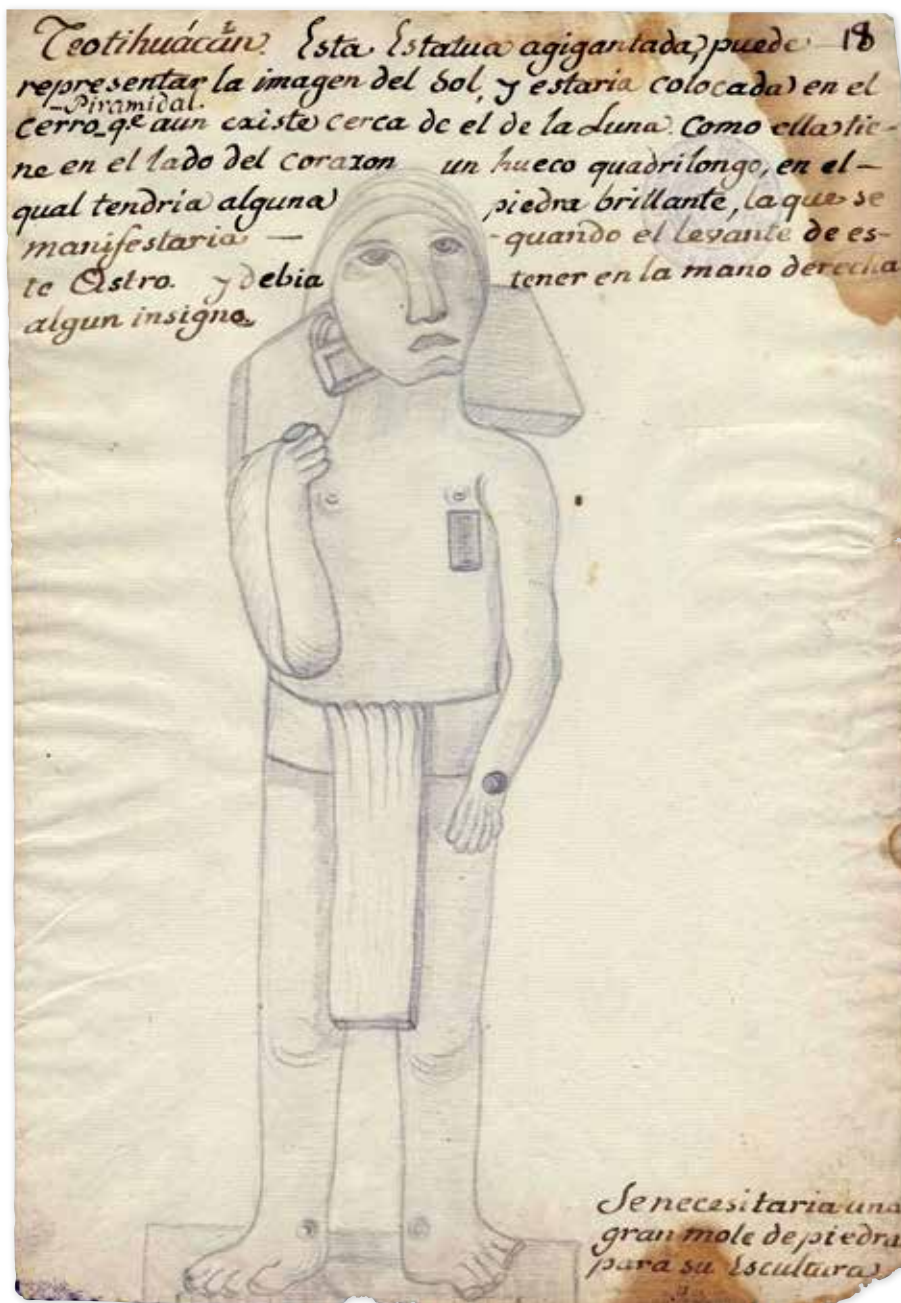 Teotihuácăn. Esta Estatua agigantada, puede 18
representar la imagen del Sol, y estaria colocada en el
-Piramidal.
cerro qe aun existe cerca de el de la Luna. Como ella tie-
ne en el lado del corazon un hueco quadrilongo, en el-
qual tendría alguna piedra brillante, la que se
manifestaria — -quando el levante de es-
te Astro. y debia tener en la mano derecha
algun insigne.
Se necesitaria una
gran mole de piedra
para su Escultura